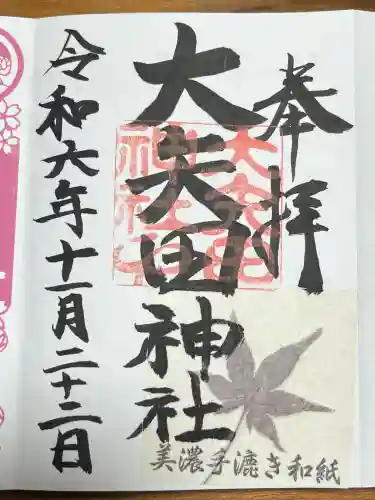 奉拝
大矢田神社
令和六年十一月二十二日
大矢田神社印
美濃手漉き和紙